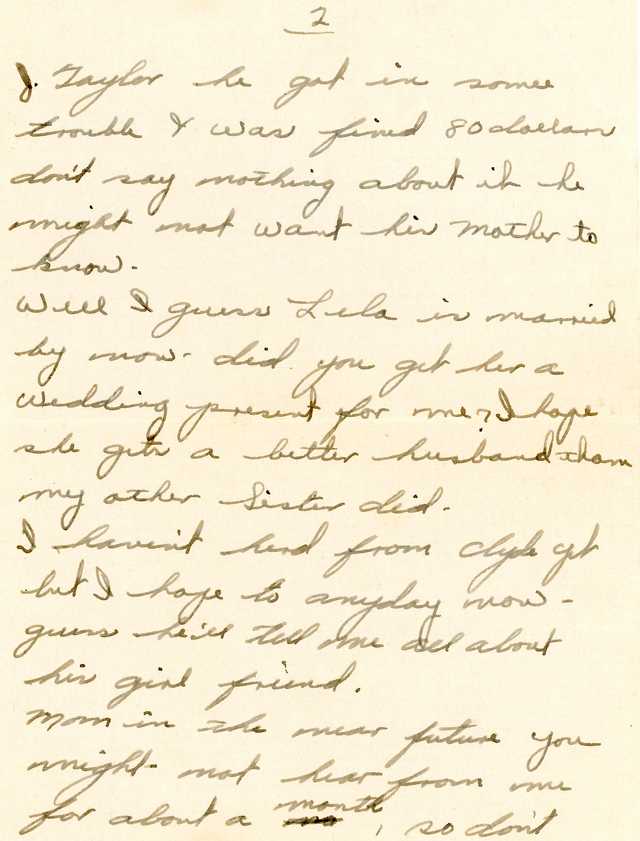 2
J. Taylor he got in some
trouble & was fined 80 dollars
don't say nothing about it he
might not want his Mother to
know.
Will I guess Lila is married
by now. did you get her a
wedding present for me? I hope
she gets a better husband than
my other Sister did.
I haven't herd from Clyde yet
but I hope to anyday now -
guess he'll tell me all about
his girl friend.
Mom in the near future you
might not hear from me
for about a month, so don't